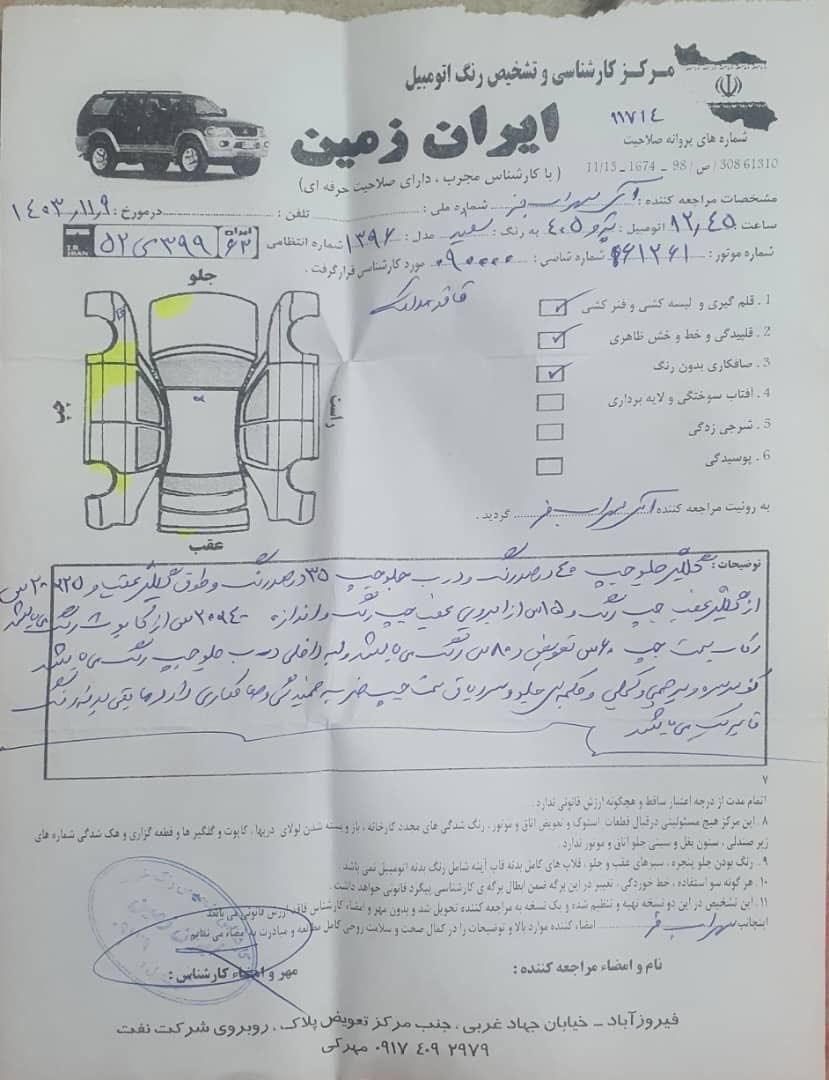 مرکز کارشناسی و تشخیص رنگ اتومبیل
ایران زمین
۹۹۷۱٤
( با کارشناس مجرب ، دارای صلاحیت حرفه ای )
شماره های پروانه صلاحیت
308 61310 / ص / 98 _ 1674 _ 11/15
مشخصات مراجعه کننده : آقای سهراب فر شماره ملی : تلفن : درمورخ : ۱٤۰۳،۱۱،۹
ساعت : ۱۲،٤۵ اتومبیل : پژو ٤۰۵ به رنگ : سفید مدل : ۱۳۹۶ شماره انتظامی
ایران ۶۳ ۳۹۹ ی ۵۲
I.R. IRAN
شماره موتور : شماره شاسی : مورد کارشناسی قرار گرفت .
فاقد مدارک
جلو
چپ
راست
عقب
1 . قلم گیری و لیسه کشی و فنر کشی
2 . قلپیدگی و خط و خش ظاهری
3 . صافکاری بدون رنگ
4 . آفتاب سوختگی و لایه برداری
5 . شرجی زدگی
6 . پوسیدگی
به رونیت مراجعه کننده آقای سهراب فر گردید .
توضیحات : گلگیر جلو چپ ٤۰ درصد رنگ و درب جلو چپ ۳۵ درصد رنگ و طوق گلگیر عقب
از گلگیر عقب چپ رنگ و از ابروی عقب چپ رنگ و اندازه از کاپوت رنگ می باشد
رکاب سمت چپ تعویض و رنگ می باشد و لبه داخلی درب جلو چپ رنگ می باشد
سمت چپ ضربه خوردگی و صافکاری دارد مابقی بدنه رنگ
فابریک می باشد
۷
اتمام مدت از درجه اعتبار ساقط و هیچگونه ارزش قانونی ندارد .
۸ . این مرکز هیچ مسئولیتی درقبال قطعات استوک و تعویض اتاق و موتور ، رنگ شدگی های مجدد کارخانه ، باز و بسته شدن لولای دربها ، کاپوت و گلگیر ها و قطعه گزاری و هک شدگی شماره های
زیر صندلی ، ستون بغل و سینی جلو اتاق و موتور ندارد .
۹ . رنگ بودن جلو پنجره ، سپرهای عقب و جلو ، قلاب های کامل بدنه قاب آینه شامل رنگ بدنه اتومبیل نمی باشد .
۱۰ . هر گونه سو استفاده ، خط خوردگی ، تغییر در این برگه ضمن ابطال برگه ی کارشناسی پیگرد قانونی خواهد داشت .
۱۱ . این تشخیص در این دو نسخه تهیه و تنظیم شده و یک نسخه به مراجعه کننده تحویل شد و بدون مهر و امضاء کارشناس فاقد ارزش قانونی می باشد
اینجانب سهراب فر امضاء کننده موارد بالا و توضیحات را در کمال صحت و سلامت روحی کامل مطالعه و مبادرت به امضاء می نمایم
نام و امضاء مراجعه کننده :
مهر و امضاء کارشناس :
فیروزآباد – خیابان جهاد غربی ، جنب مرکز تعویض پلاک ، روبروی شرکت نفت
۰۹۱۷ ٤۰۹ ۲۹۷۹ مهرکی